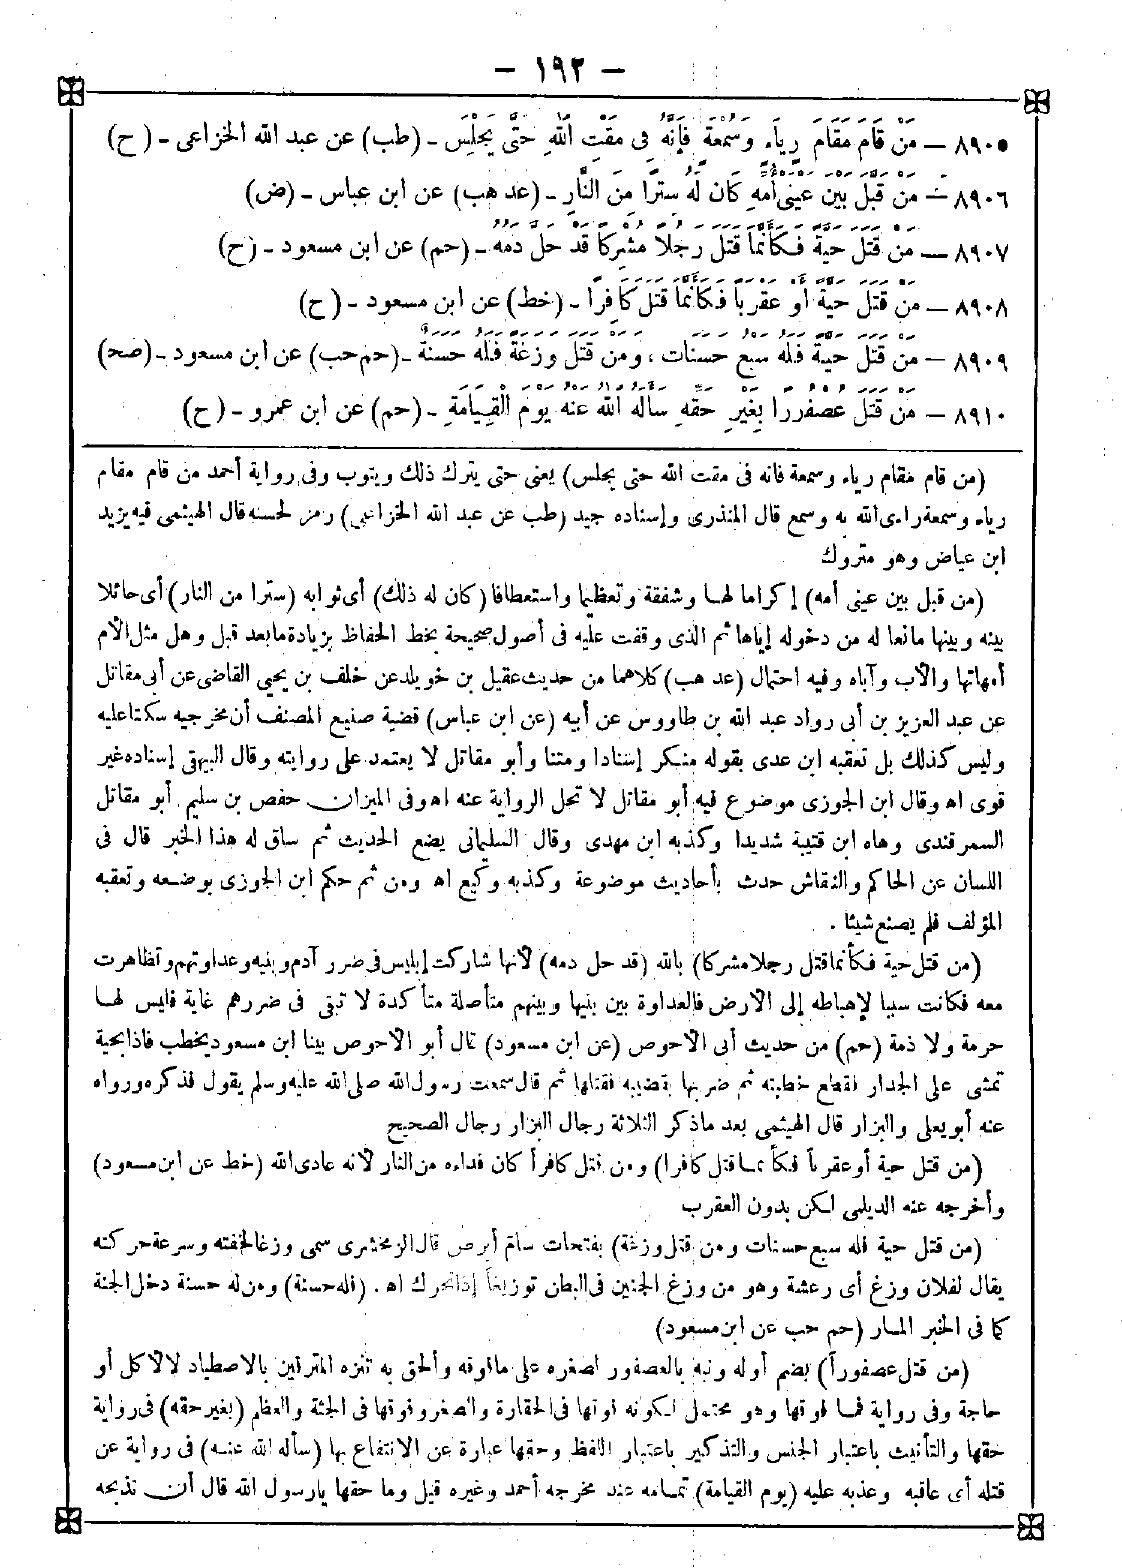 – ١٩٢ –
٨٩٠٥ – مَنْ قَامَ مَقَامَ رِيَاءٍ وَسُمْعَةٍ فَإِنَّهُ فِى مَقْتِ اللهِ حَتَّى يَجْلِسَ – (طب) عن عبد الله الخزاعى – (ح)
٨٩٠٦ – مَنْ قَبَّلَ بَيْنَ عَيْنَىْ أُمِّهِ كَانَ لَهُ سِتْرًا مِنَ النَّارِ – (عد هب) عن ابن عباس – (ض)
٨٩٠٧ – مَنْ قَتَلَ حَيَّةً فَكَأَنَّمَا قَتَلَ رَجُلًا مُشْرِكًا قَدْ حَلَّ دَمُهُ – (حم) عن ابن مسعود – (ح)
٨٩٠٨ – مَنْ قَتَلَ حَيَّةً أَوْ عَقْرَبًا فَكَأَنَّمَا قَتَلَ كَافِرًا – (خط) عن ابن مسعود – (ح)
٨٩٠٩ – مَنْ قَتَلَ حَيَّةً فَلَهُ سَبْعُ حَسَنَاتٍ ، وَمَنْ قَتَلَ وَزَغَةً فَلَهُ حَسَنَةٌ – (حم حب) عن ابن مسعود – (صح)
٨٩١٠ – مَنْ قَتَلَ عُصْفُورًا بِغَيْرِ حَقِّهِ سَأَلَهُ اللهُ عَنْهُ يَوْمَ الْقِيَامَةِ – (حم) عن ابن عمرو – (ح)
(من قام مقام رياء وسمعة فانه فى مقت الله حتى يجلس) يعنى حتى يترك ذلك ويتوب وفى رواية أحمد من قام مقام
رياء وسمعة راءى الله به وسمع قال المنذرى وإسناده جيد (طب عن عبد الله الخزاعى) رمز لحسنه قال الهيثمى فيه يزيد
ابن عياض وهو متروك
(من قبل بين عينى أمه) إكراما لها وشفقة وتعظيما واستعطافا (كان له ذلك) أى ثوابه (سترا من النار) أى حائلا
بينه وبينها مانعا له من دخوله إياها ثم الذى وقفت عليه فى أصول صحيحة بخط الحفاظ بزيادة ما بعد قبل وهل مثل الأم
أمهاتها والأب وآباه وفيه احتمال (عد هب) كلاهما من حديث عقيل بن خويلد عن خلف بن يحيى القاضى عن أبى مقاتل
عن عبد العزيز بن أبى رواد عبد الله بن طاووس عن أبيه (عن ابن عباس) قضية صنيع المصنف أن مخرجيه سكتا عليه
وليس كذلك بل تعقبه ابن عدى بقوله منكر إسنادا ومتنا وأبو مقاتل لا يعتمد على روايته وقال البيهقى إسناده غير
قوى اه وقال ابن الجوزى موضوع فيه أبو مقاتل لا تحل الرواية عنه اه وفى الميزان حفص بن سليم أبو مقاتل
السمرقندى وهاه ابن قتيبة شديدا وكذبه ابن مهدى وقال السليمانى يضع الحديث ثم ساق له هذا الخبر قال فى
اللسان عن الحاكم والنقاش حدث بأحاديث موضوعة وكذبه وكيع اه ومن ثم حكم ابن الجوزى بوضعه وتعقبه
المؤلف فلم يصنع شيئا .
(من قتل حية فكأنما قتل رجلا مشركا) بالله (قد حل دمه) لأنها شاركت إبليس فى ضرر آدم وبنيه وعداوتهم وتظاهرت
معه فكانت سببا لإهباطه إلى الأرض فالعداوة بين بنيها وبينهم متأصلة متأكدة لا تبقى فى ضررهم غاية فليس لها
حرمة ولا ذمة (حم) من حديث أبى الأحوص (عن ابن مسعود) قال أبو الأحوص بينا ابن مسعود يخطب فاذا بحية
تمشى على الجدار فقطع خطبته ثم ضربها بقضيبه فقتلها ثم قال سمعت رسول الله صلى الله عليه وسلم يقول فذكره ورواه
عنه أبو يعلى والبزار قال الهيثمى بعد ما ذكر الثلاثة رجال البزار رجال الصحيح
(من قتل حية أو عقربا فكأنما قتل كافرا) ومن قتل كافرا كان فداءه من النار لأنه عادى الله (خط عن ابن مسعود)
وأخرجه عنه الديلمى لكن بدون العقرب
(من قتل حية فله سبع حسنات ومن قتل وزغة) بفتحات سام أبرص قال الزمخشرى سمى وزغا لخفته وسرعة حركته
يقال لفلان وزغ أى رعشة وهو من وزغ الجنين فى البطن توزيغا إذا تحرك اه . (فله حسنة) ومن له حسنة دخل الجنة
كما فى الخبر المار (حم حب عن ابن مسعود)
(من قتل عصفوراً) بضم أوله ونبه بالعصفور لصغره على ما فوقه وألحق به تنزه المترفين بالاصطياد لا لأكل أو
حاجة وفى رواية فما فوقها وهو محتمل لكونه فوقها فى الحقارة والصغر وفوقها فى الجثة والعظم (بغير حقه) فى رواية
حقها والتأنيث باعتبار الجنس والتذكير باعتبار اللفظ وحقها عبارة عن الانتفاع بها (سأله الله عنه) فى رواية عن
قتله أى عاقبه وعذبه عليه (يوم القيامة) تمامه عند مخرجه أحمد وغيره قيل وما حقها يا رسول الله قال أن تذبحه